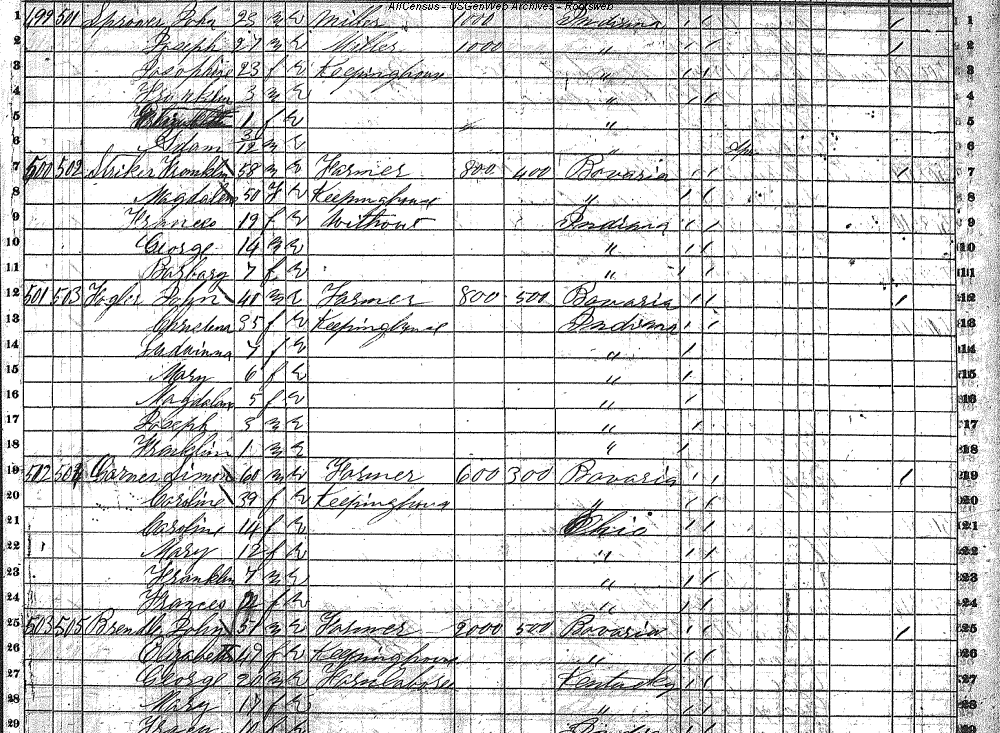 AllCensus - USGenWeb Archives - Rootsweb
1 499 501 John 1000 Indiana 1
2 Joseph 27 m W Miller 1000 " 2
3 Josephine 23 f W Keepinghouse " 3
4 Franklin 3 m W " 4
5 1 f W " 5
6 Adam m W " 6
7 500 502 Striker Franklin 58 m W Farmer 800 400 Bovaria 7
8 Magdalena 50 f W Keepinghouse " 8
9 Frances 19 f W Without Indiana 9
10 George 14 m W " 10
11 Barbary 7 f W " 11
12 501 503 John 40 m W Farmer 800 500 Bovaria 12
13 Christena 35 f W Keepinghouse Indiana 13
14 7 f W " 14
15 Mary 6 f W " 15
16 Magdalena 5 f W " 16
17 Joseph 3 m W " 17
18 Franklin 1 m W " 18
19 502 504 Simon 60 m W Farmer 600 300 Bovaria 19
20 Caroline 39 f W Keepinghouse " 20
21 Caroline 14 f W Ohio 21
22 Mary 12 f W " 22
23 Franklin 7 m W " 23
24 Frances f W " 24
25 503 505 John 51 m W Farmer 2000 500 Bovaria 25
26 Elizabeth 49 f W Keepinghouse " 26
27 George m W Kentucky 27
28 Mary 17 f W " 28
29 f W 29